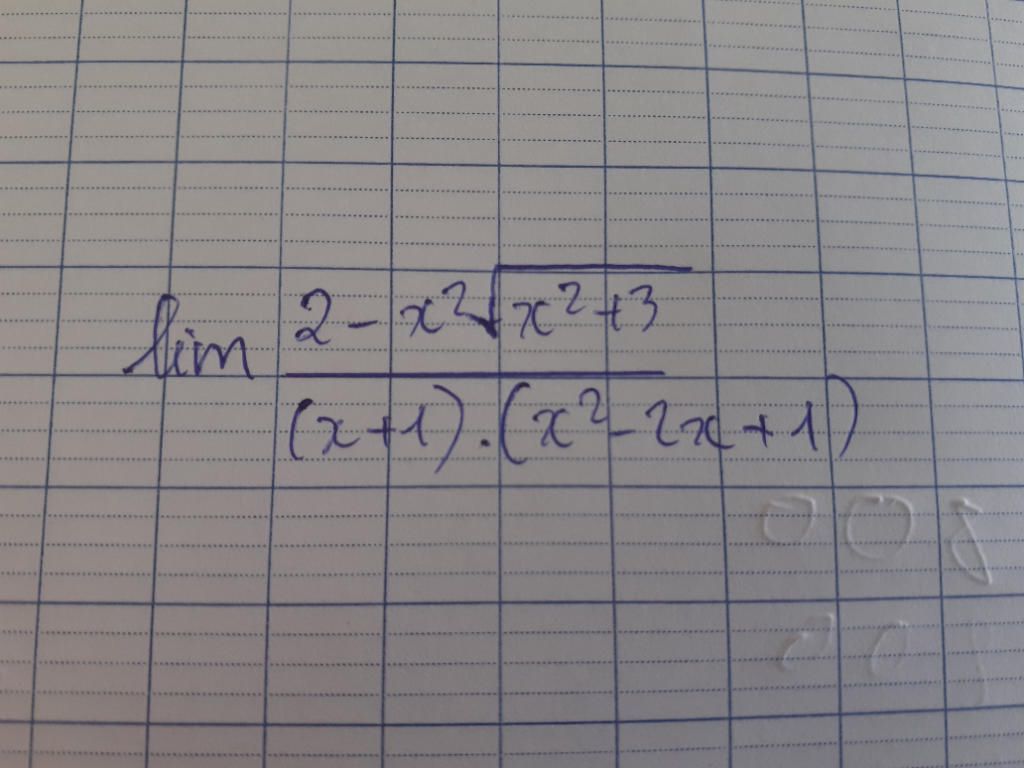 lim (2 - x²√(x²+3)) / ((x+1).(x²-2x+1))